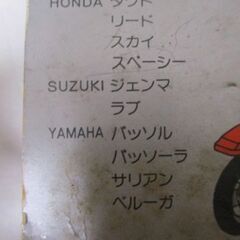 HONDA タクト
リード
スカイ
スペーシー
SUZUKI ジェンマ
ラブ
YAMAHA パッソル
パッソーラ
サリアン
ベルーガ